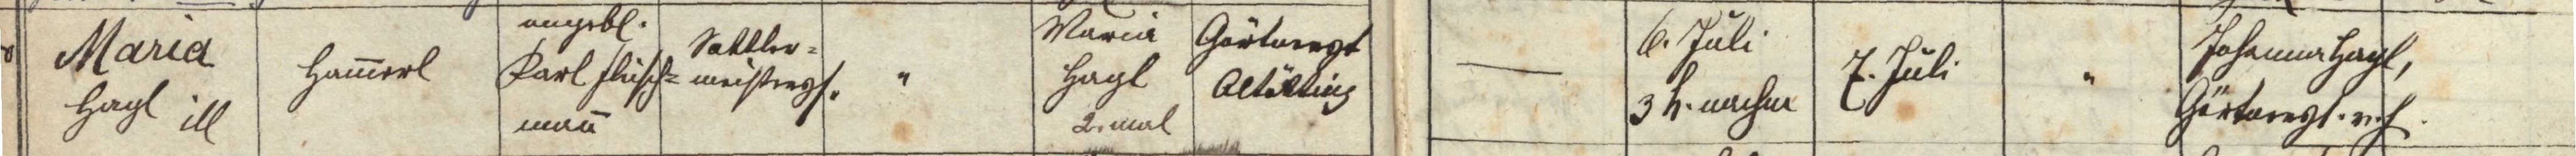 Maria
Hagl ill
Ham̅erl
angebl.
Karl Fleisch=
man̅
Sattler=
meisters.
"
Maria
Hagl
2. mal
Gärtnerst
Altötting
—
6. Juli
3 h. nachm
7. Juli
"
Johanna Hagl,
Gärtnerst. v. h.